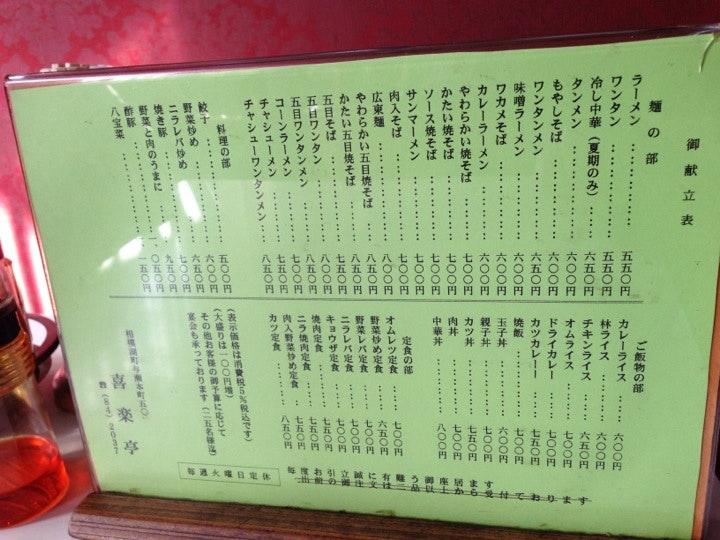 御献立表
麺の部
ラーメン………五五〇円
ワンタン………五五〇円
冷し中華(夏期のみ)……六五〇円
タンメン………六〇〇円
もやしそば………六〇〇円
ワンタンメン………六五〇円
味噌ラーメン………六〇〇円
ワカメそば………六〇〇円
カレーラーメン………六〇〇円
やわらかい焼そば………七〇〇円
かたい焼そば………七〇〇円
ソース焼そば………七〇〇円
サンマーメン………七〇〇円
肉入そば………七〇〇円
広東麺………八〇〇円
やわらかい五目焼そば………八五〇円
かたい五目焼そば………八五〇円
五目そば………七五〇円
五目ワンタン………八〇〇円
五目ワンタンメン………八五〇円
コーンラーメン………七五〇円
チャシューメン………七五〇円
チャシューワンタンメン………八五〇円
料理の部
餃子………五〇〇円
野菜炒め………六〇〇円
ニラレバ炒め………六五〇円
焼き豚………七〇〇円
野菜と肉のうまに………九五〇円
酢豚………一、〇五〇円
八宝菜………一五〇円
ご飯物の部
カレーライス……六〇〇円
林ライス………六〇〇円
チキンライス……六五〇円
オムライス……七〇〇円
ドライカレー……七〇〇円
カツカレー……七五〇円
焼飯………六〇〇円
玉子丼………六〇〇円
親子丼………六五〇円
カツ丼………七〇〇円
肉丼………七〇〇円
中華丼………八〇〇円
定食の部
オムレツ定食……七〇〇円
野菜炒め定食……六五〇円
野菜レバ定食……七〇〇円
ニラレバ定食……七〇〇円
キョウザ定食……七〇〇円
焼肉定食………七五〇円
ニラ焼肉定食……七五〇円
肉入野菜炒め定食
カツ定食………八五〇円
(表示価格は消費税5%税込です)
(大盛りは一〇〇円増)
その他お客様の御予算に応じて
宴会も承っております(二五名様迄)
相模湖町与瀬本町五〇
喜楽亭
☎(84)2037
毎週火曜日定休
毎度お引立誠に有難う御座居ます
出前の御注文は二品以上から受付ております